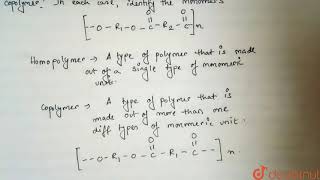 Copolymer. In each case, identify the monomers
O O
[-O-R₁-O-C-R₂-C]n
Homopolymer → A type of polymer that is made
out of a single type of monomeric
unit.
Copolymer → A type of polymer that is
made out of more than one
diff types of monomeric unit.
O O
[--O-R₁-O-C-R₁-C--]n.
doubtnut